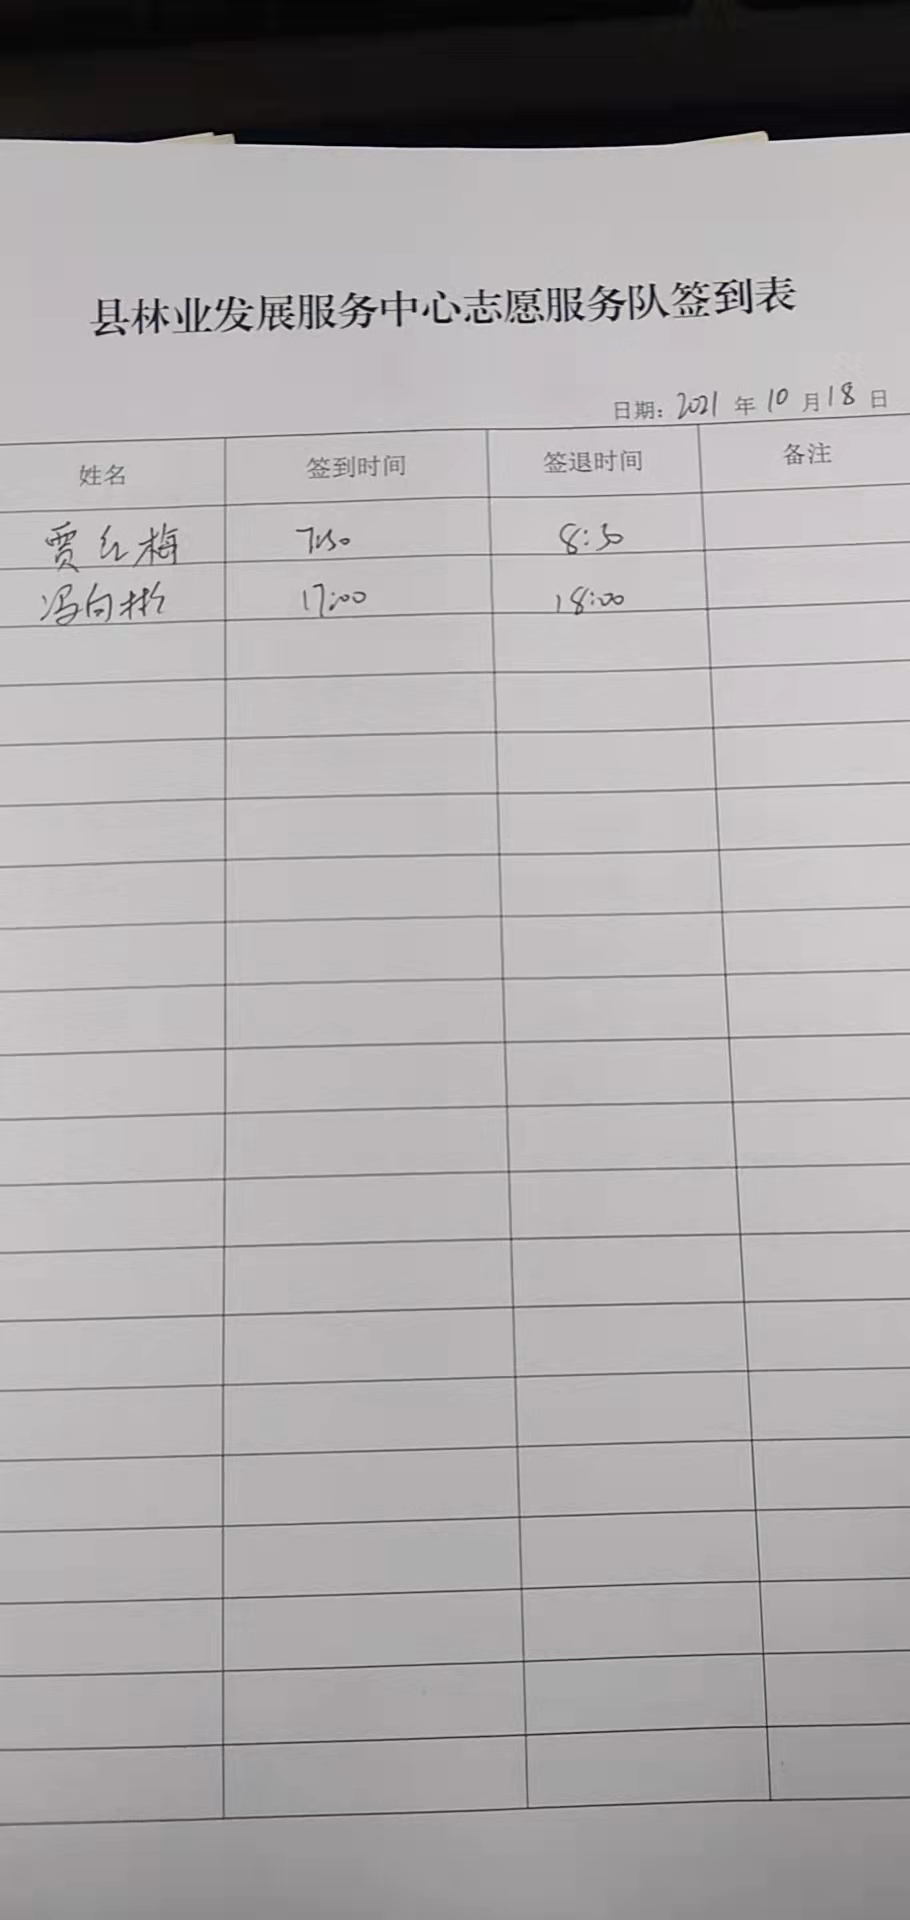 县林业发展服务中心志愿服务队签到表
日期：2021 年 10 月 18 日
姓名 签到时间 签退时间 备注
贾红梅 7:30 8:30
冯向彬 17:00 18:00